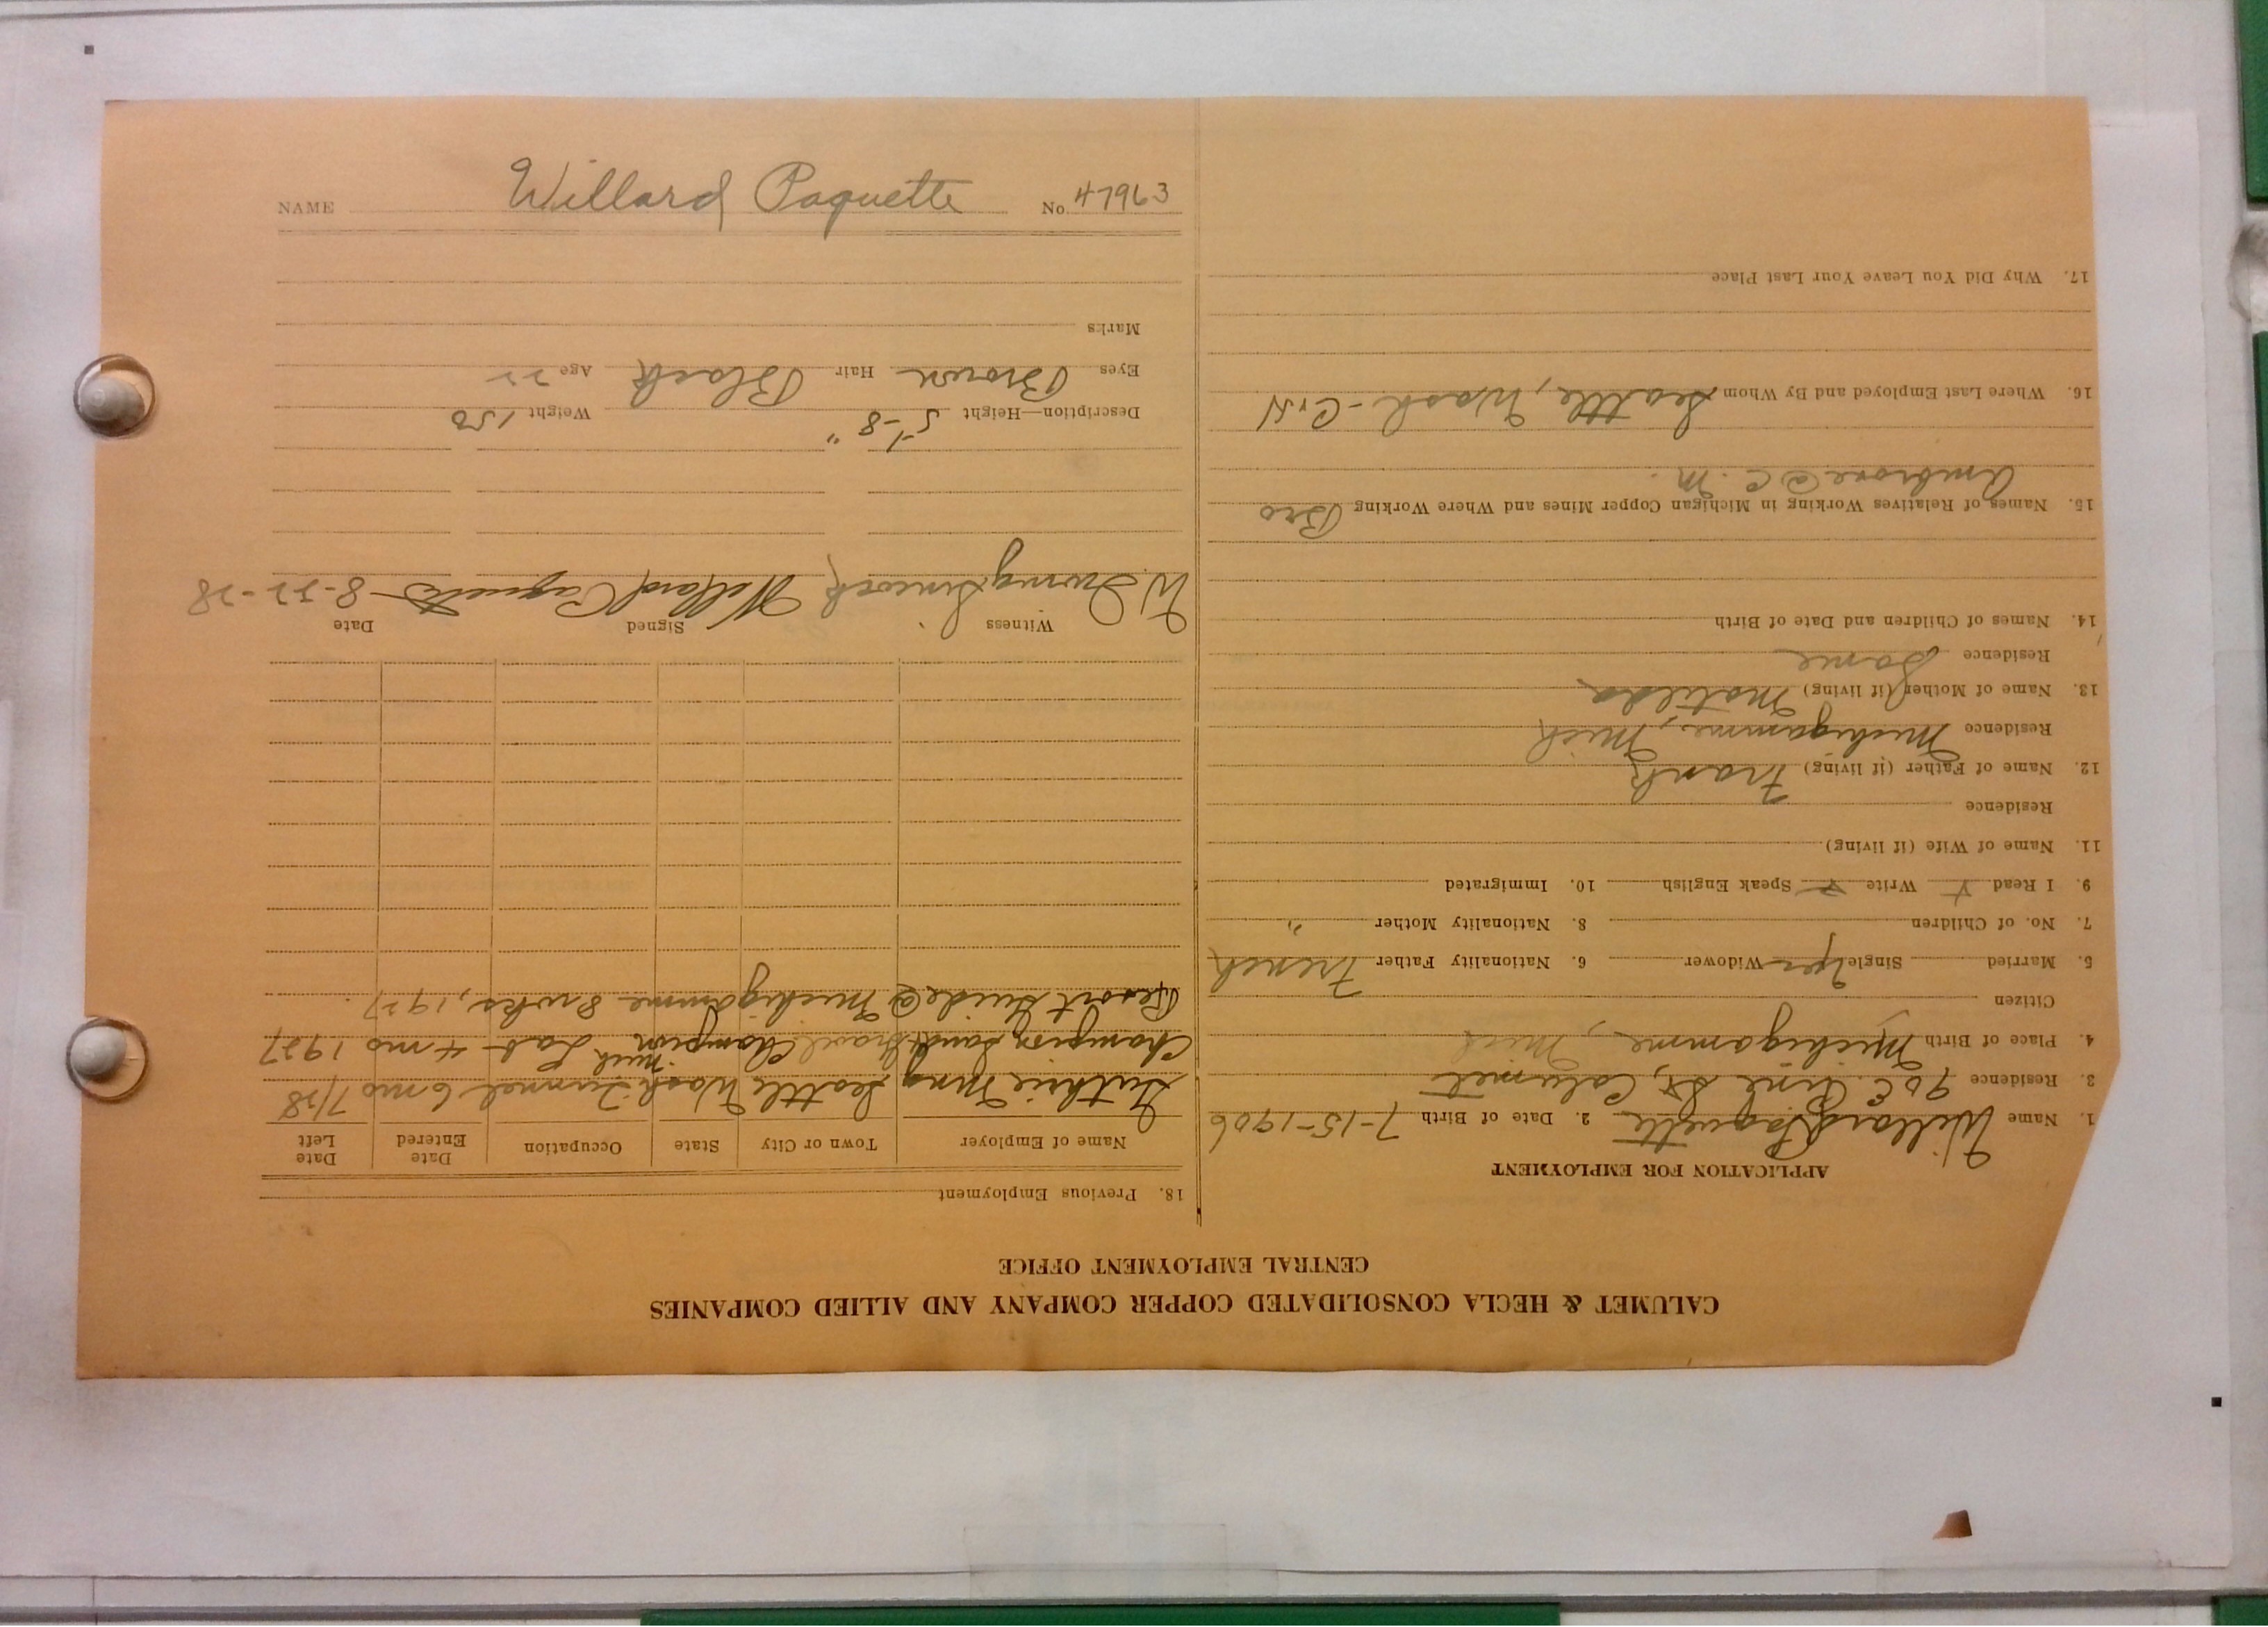 CALUMET & HECLA CONSOLIDATED COPPER COMPANY AND ALLIED COMPANIES
CENTRAL EMPLOYMENT OFFICE
APPLICATION FOR EMPLOYMENT
1. Name Willard Paquette 2. Date of Birth 7-15-1906
3. Residence 906 Pine St, Calumet
4. Place of Birth Michigamme, Mich
Citizen
5. Married Single Yes Widower 6. Nationality Father French
7. No. of Children 8. Nationality Mother "
9. I Read Y Write Y Speak English 10. Immigrated
11. Name of Wife (if living)
Residence
12. Name of Father (if living) Frank
Residence Michigamme, Mich
13. Name of Mother (if living) Matilda
Residence Same
14. Names of Children and Date of Birth
15. Names of Relatives Working in Michigan Copper Mines and Where Working Bro
Ambrose @ C. M.
16. Where Last Employed and By Whom Seattle, Wash - C & H
17. Why Did You Leave Your Last Place
18. Previous Employment
Name of Employer Town or City State Occupation Date Entered Date Left
Guthrie Mng Seattle Wash Tunnel 6 mo 7/28
Champion Sand & Gravel Champion Mich Lab 4 mo 1927
Resort Guide @ Michigamme 8 wks, 1927.
Witness Signed Date
W. Irving Willard Paquette 8-22-28
Description—Height 5'-8" Weight 150
Eyes Brown Hair Black Age 22
Marks
NAME Willard Paquette No. 47963